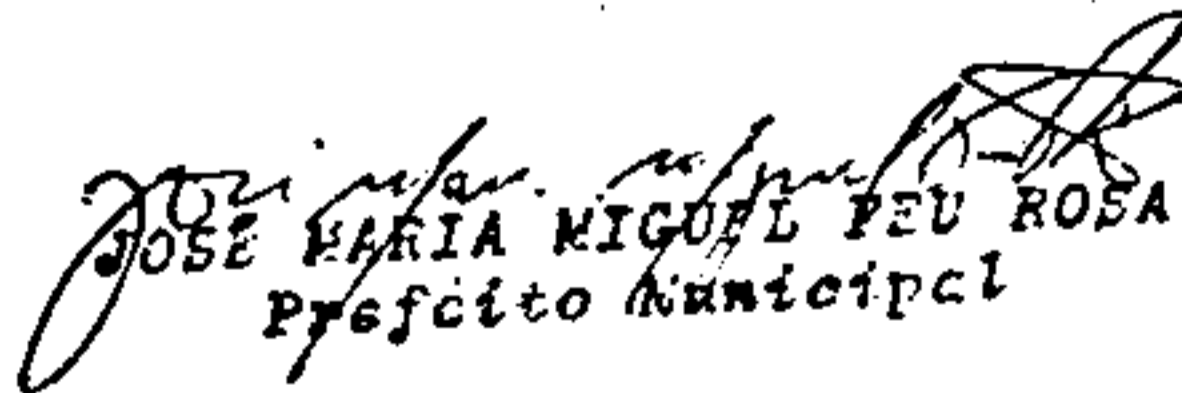 JOSÉ MARIA MIGUEL FEU ROSA
Prefeito Municipal